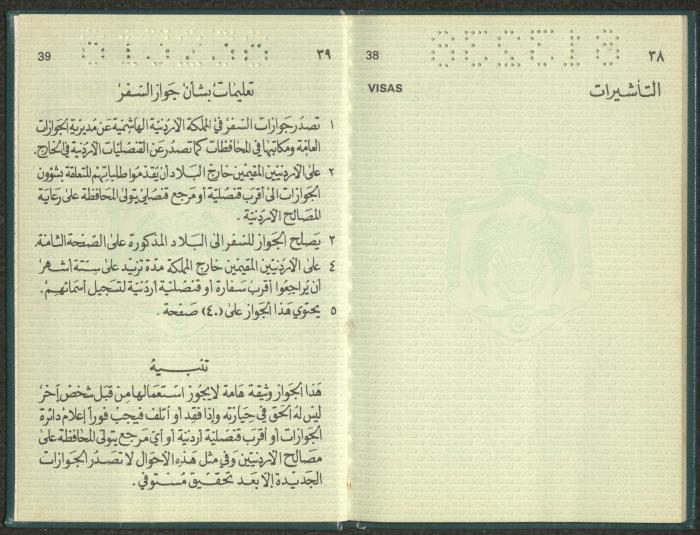 ٣٨
38
التأشيرات
VISAS
٣٩
39
تعليمات بشأن جواز السفر
١ تصدر جوازات السفر في المملكة الأردنية الهاشمية عن مديرية الجوازات
العامة ومكاتبها في المحافظات كما تصدر عن القنصليات الأردنية في الخارج.
٢ على الأردنيين المقيمين خارج البلاد أن يقدموا طلباتهم المتعلقة بشؤون
الجوازات الى أقرب قنصلية أو مرجع قنصلي يتولى المحافظة على رعاية
المصالح الأردنية .
٣ يصلح الجواز للسفر الى البلاد المذكورة على الصفحة الثامنة.
٤ على الأردنيين المقيمين خارج المملكة مدة تزيد على ستة أشهر
أن يراجعوا أقرب سفارة أو قنصلية أردنية لتسجيل أسمائهم.
٥ يحتوي هذا الجواز على (٤٠) صفحة .
تنبيه
هذا الجواز وثيقة هامة لا يجوز استعمالها من قبل شخص آخر
ليس له الحق في حيازته وإذا فقد أو أتلف فيجب فوراً إعلام دائرة
الجوازات أو أقرب قنصلية أردنية أو أي مرجع يتولى المحافظة على
مصالح الأردنيين وفي مثل هذه الأحوال لا تصدر الجوازات
الجديدة إلا بعد تحقيق مستوفي .